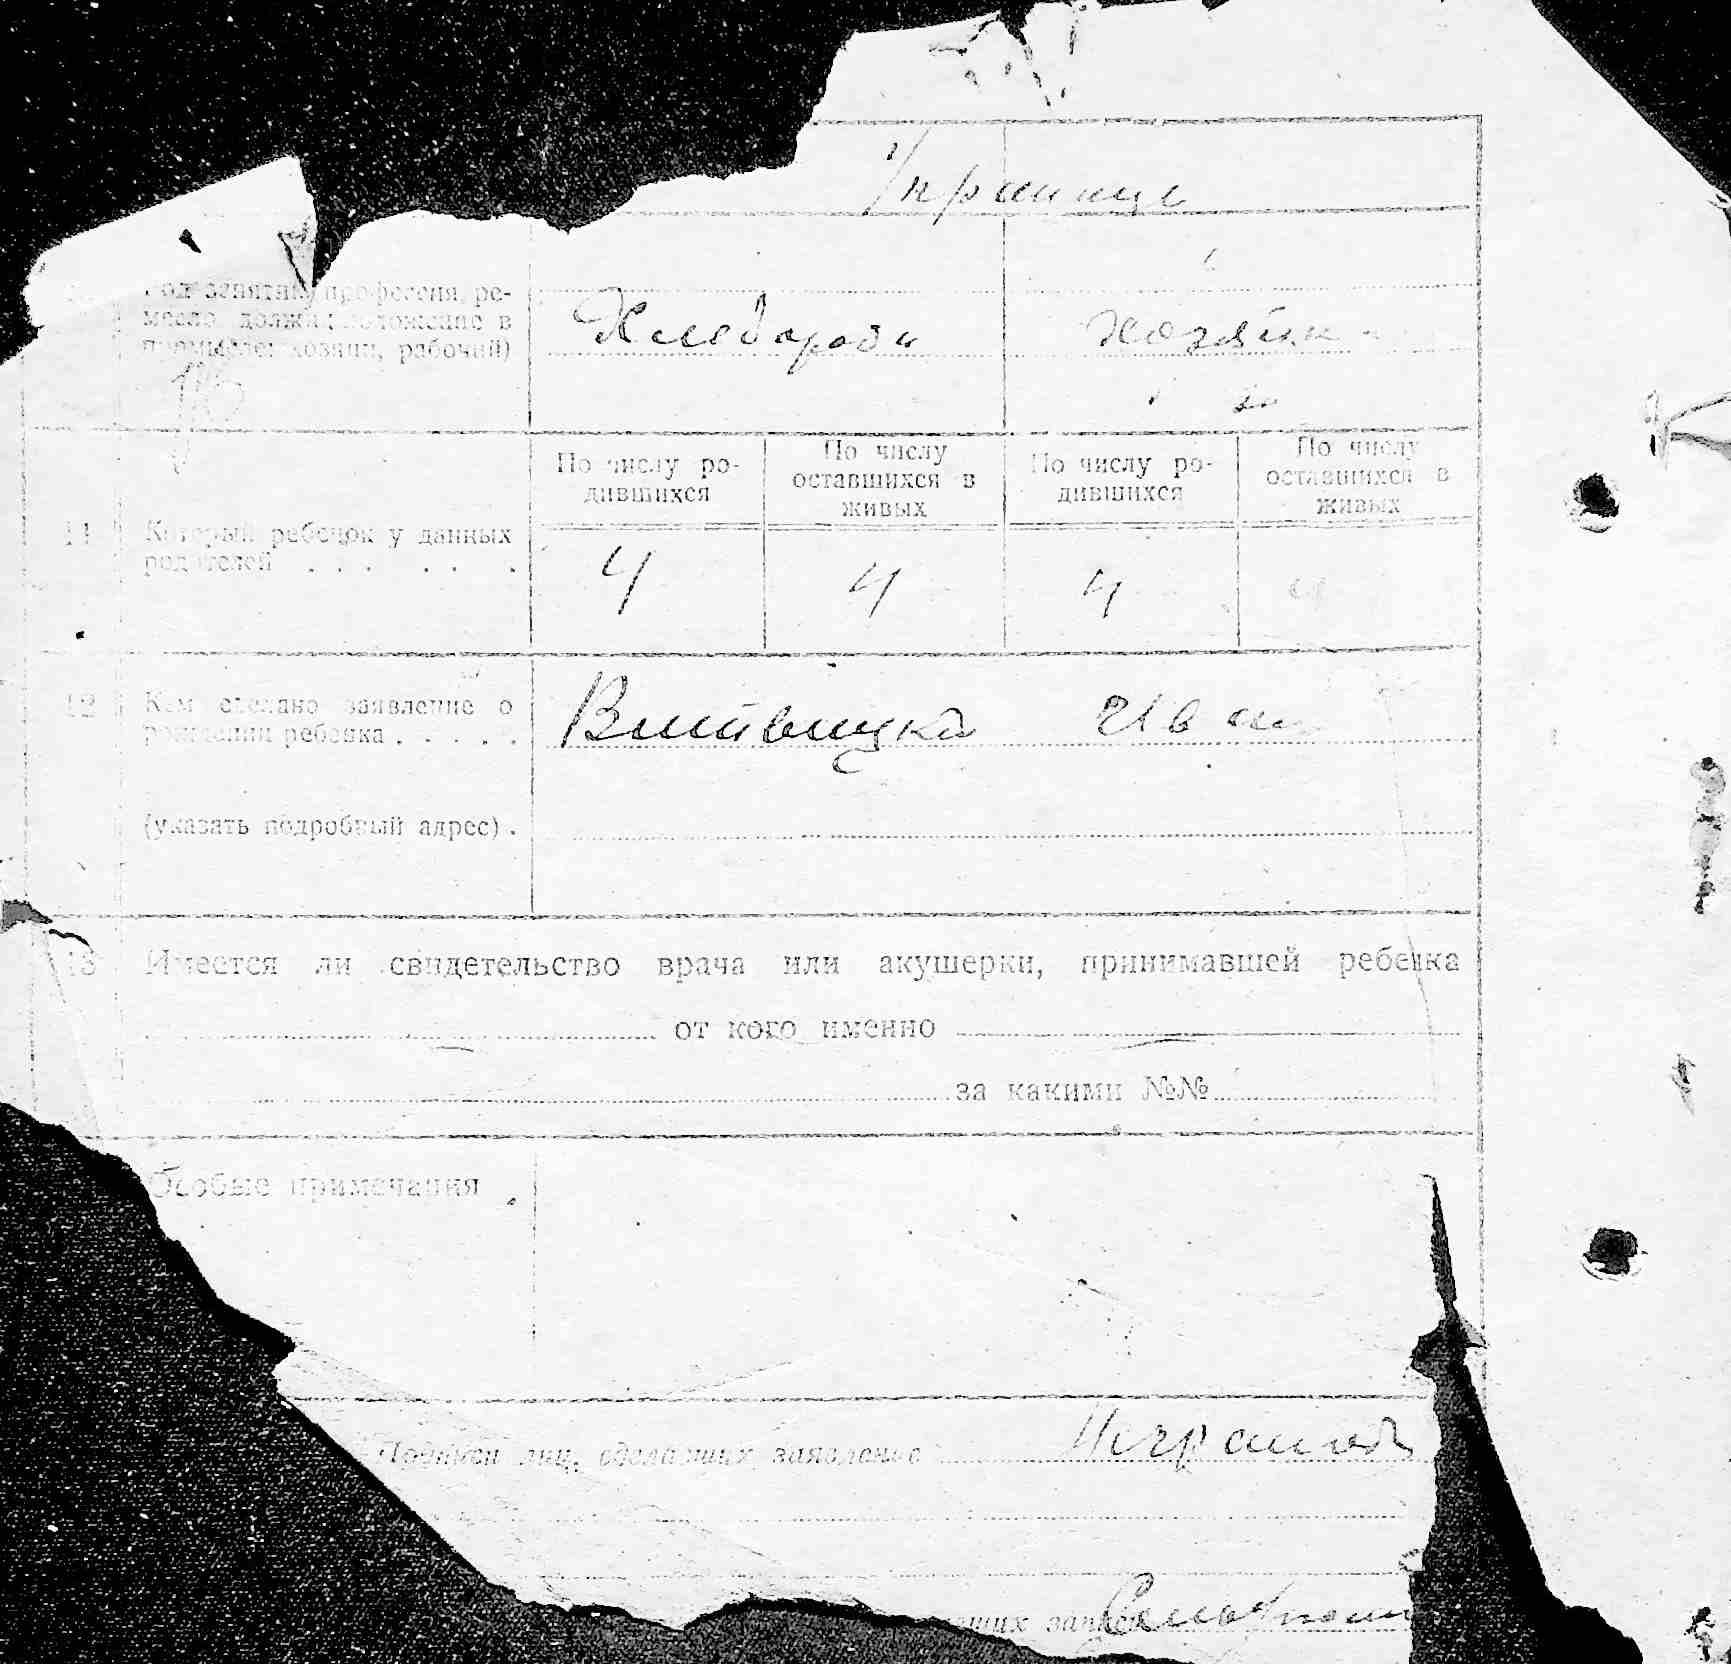 Украинцы
Род занятий (профессия, ре-
месло, должн. положение в
хозяин, рабочий)
Хлебороб
По числу ро-
дившихся
По числу
оставшихся в
живых
По числу ро-
дившихся
По числу
оставшихся в
живых
11 Который ребенок у данных
родителей . . . . . .
4 4 4 4
12 Кем сделано заявление о
рождении ребенка . . . . .
Витвицкий Иван
(указать подробный адрес) .
13 Имеется ли свидетельство врача или акушерки, принимавшей ребенка
от кого именно
за какими №№
Особые примечания .
Подписи лиц, сделавших заявление
Неграмот
ших запись